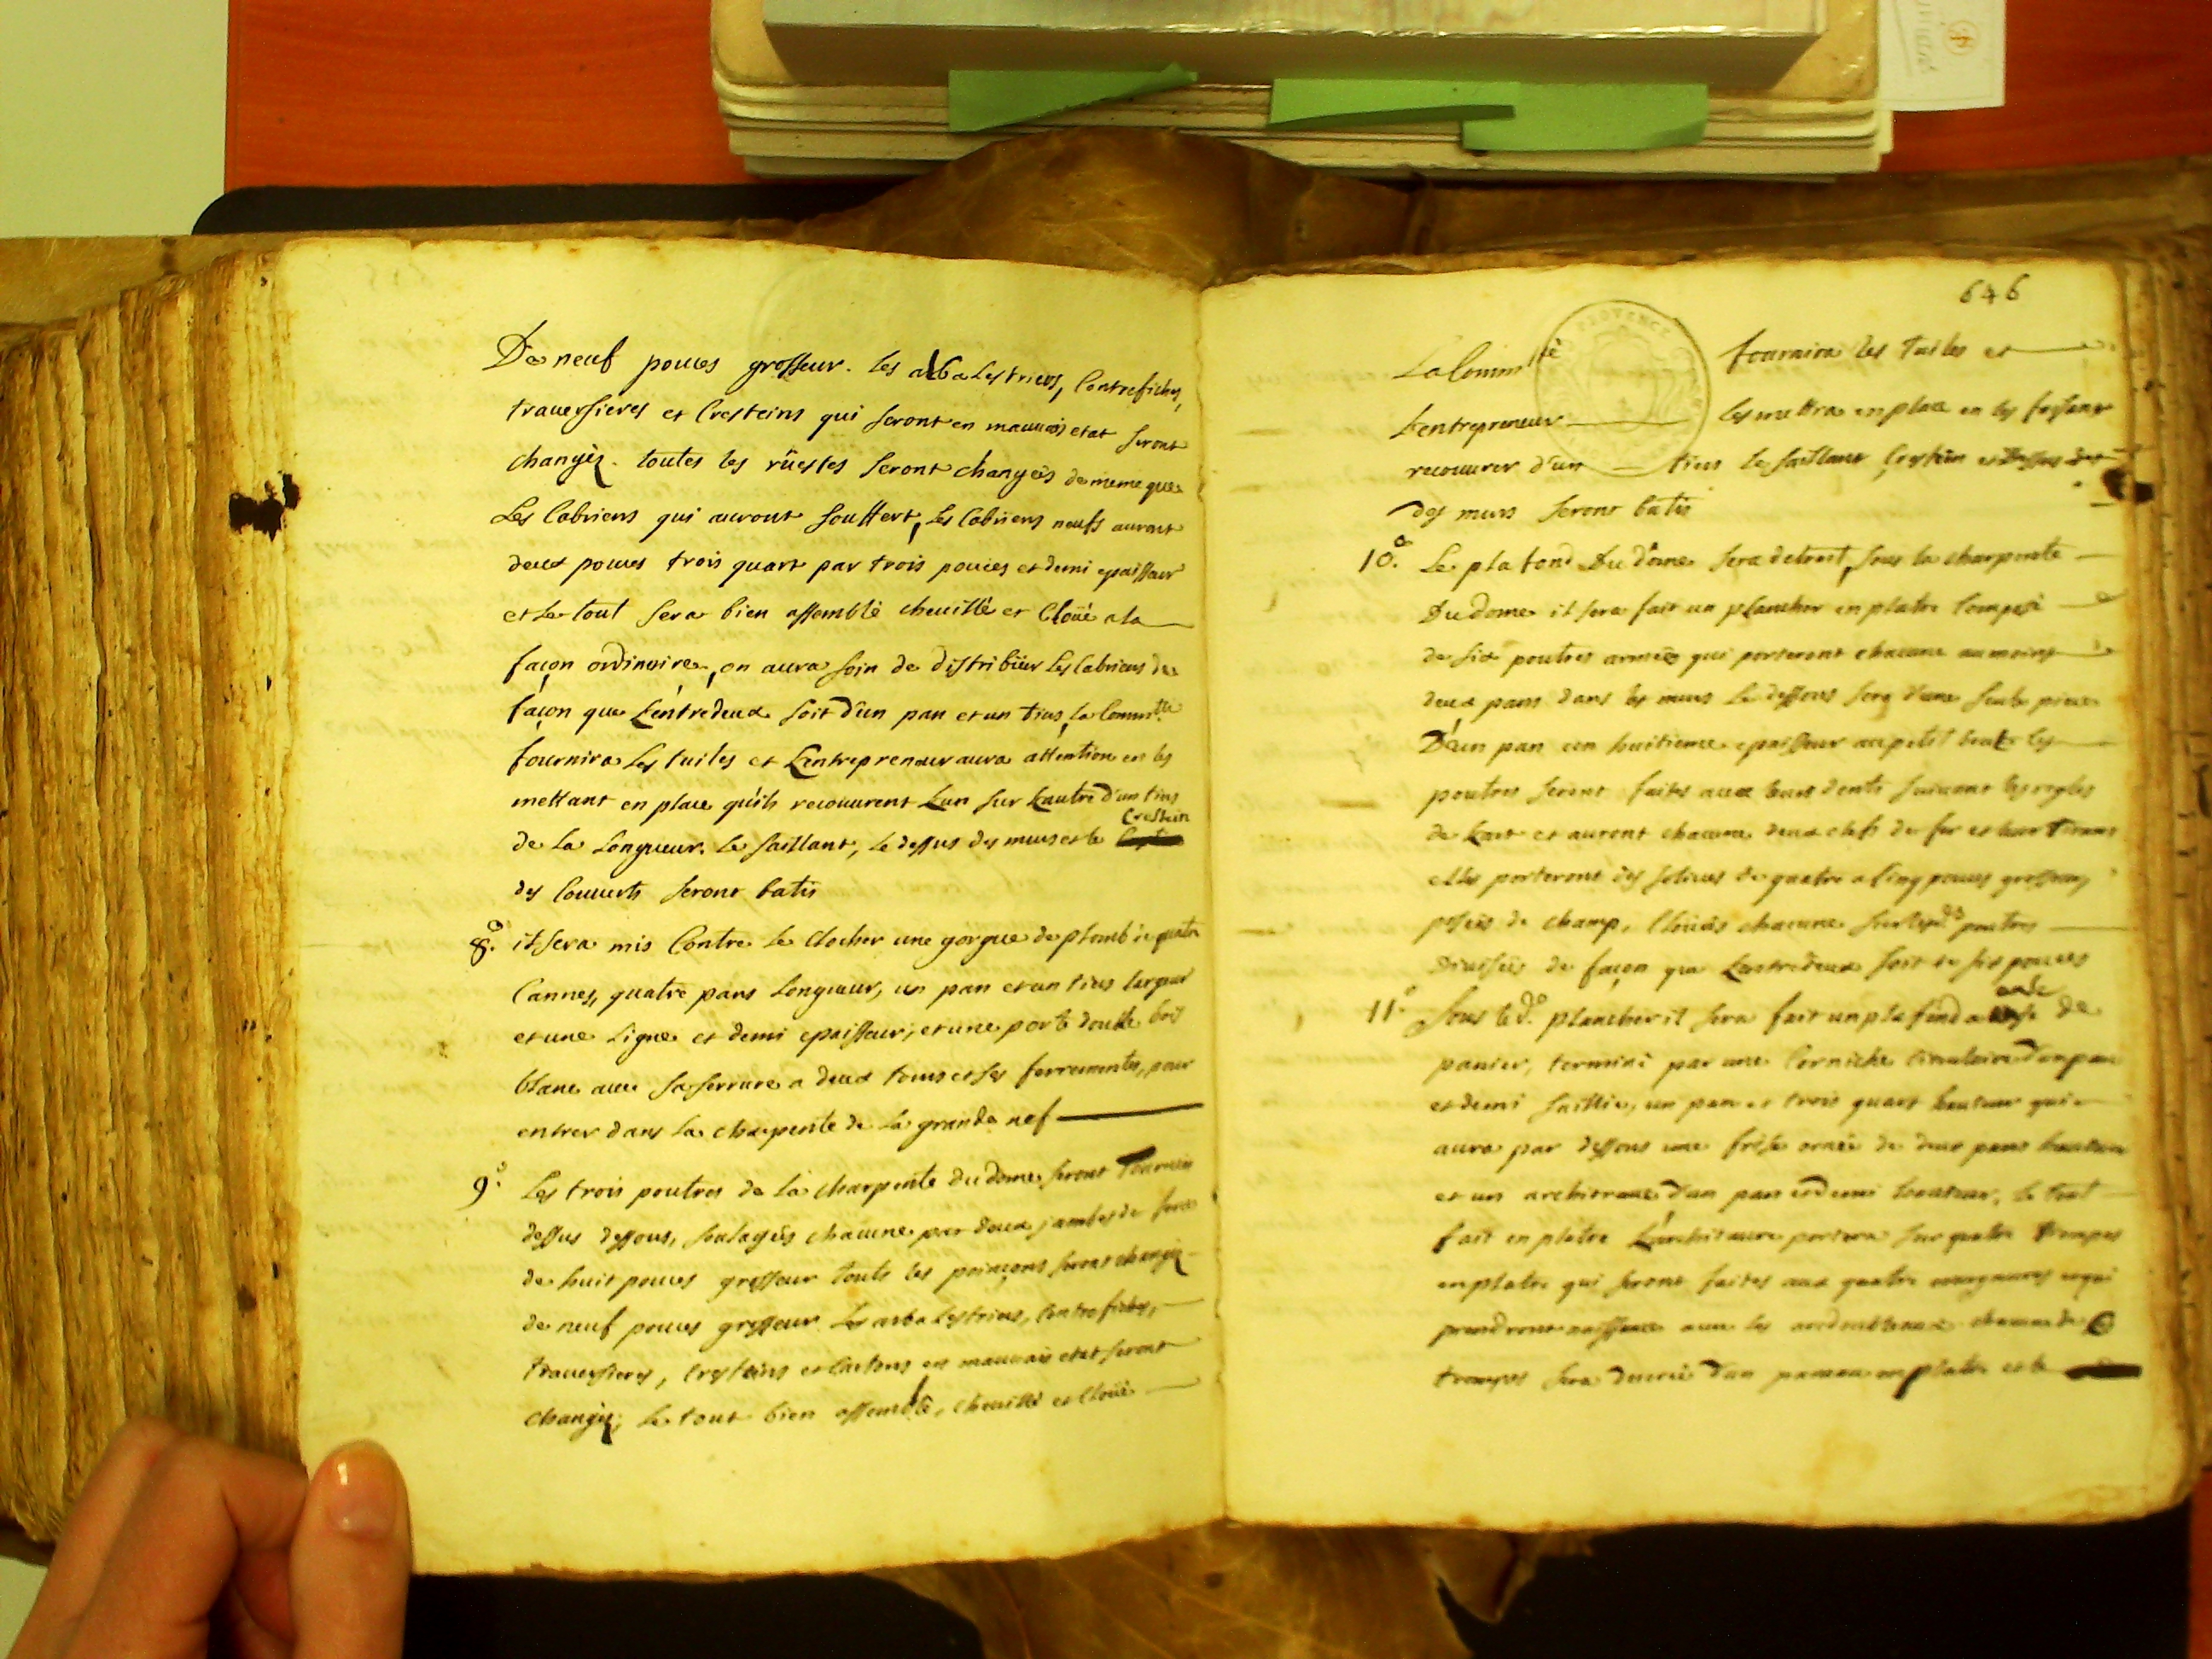 De neuf pouces grosseur. les arbalestriers, Contrefiches,
traversieres et Cresteins qui seront en mauvais etat seront
changés. toutes les rüestes seront changées de meme que
Les Cabriens qui auront souffert, les Cabriens neufs auront
deux pouces trois quart par trois pouces et demi epaisseur
et Le tout sera bien assemblé chevillé et Cloüé a la
façon ordinaire, on aura soin de distribüer Les Cabriens de
façon que L'entredeux soit d'un pan et un tiers, la Comm.té
fournira Les tuiles et L'entrepreneur aura attention en les
mettant en place qu'ils recouvrent L'un sur L'autre d'un tiers
Crestein
de La Longueur. Le saillant, Le dessus des murs et le
des Couverts seront batis
8.° it sera mis Contre Le Clocher une gorgue de plomb de quatre
Cannes, quatre pans Longueur, un pan et un tiers largeur
et une Ligne et demi epaisseur, et une porte double bois
blanc avec sa serrure a deux tours et ses ferrements, pour
entrer dans La charpente de La grande nef
9.° Les trois poutres de La charpente du dome seront tournées
dessus dessous, soulagées chacune par deux jambes de force
de huit pouces grosseur touts les poinçons seront changés
de neuf pouces grosseur Les arbalestriers, Contrefiches,
traversieres, Cresteins et en mauvais etat seront
changés; Le tout bien assemblé, chevillé et Cloüé
646
PROVENCE
La Comm.té fournira les tuiles et
L'entrepreneur les mettra en place en les faisant
recouvrer d'un tiers le saillant Crestein et dessus
des murs seront batis
10.° Le plafond Du dôme sera detruit, sous la charpente
Du dome it sera fait un plancher en platre Composé
de six poutres armées qui porteront chacune au moins
deux pans dans les murs Le dessous sera d'une seule piece
D'un pan un huitieme epaisseur au petit bout les
poutres seront faites avec leurs dents suivant les regles
de L'art et auront chacune deux clefs de fer et leur tirans
elles porteront des solives de quatre a Cinq pouces grosseur,
posées de champ, Cloüées chacune sur les d.es poutres
Divisées de façon que L'entredeux soit de six pouces
11.° Sous le d.° plancher il sera fait un plafond a ance de
panier, terminé par une Corniche Circulaire d'un pan
et demi saillie, un pan et trois quart hauteur qui
aura par dessous une frise ornée de deux pans hauteur
et un architrave d'un pan et demi hauteur, Le tout
fait en platre L'architrave portera sur quatre trompes
en platre qui seront faites aux quatre et qui
prendront naissance avec les arcdoubleaux chacune de
trompes sera decoré d'un panneau en platre et le